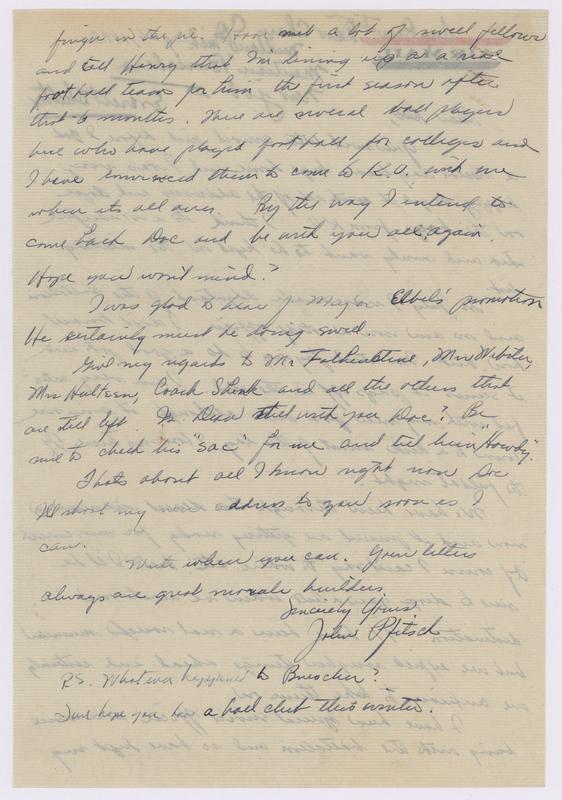 finger in the pie. Have met a lot of swell fellows
and tell Henry that I'm lining up a nice
football team for him the first season after
that 6 months. There are several ball players
here who have played football for colleges and
I have convinced them to come to K.U. with me
when its all over. By the way I intend to
come back Doc and be with you all again.
Hope you won't mind?
I was glad to hear of Major Elbel's promotion
He certainly must be doing swell.
Give my regards to Mr Falkenstine, Mrs Webster,
Mrs Hulteen, Coach Shenk and all the others that
are still left. Is Dean still with you Doc? Be
sure to check his "sac" for me and tell him "Howdy".
Thats about all I know right now Doc
I'll shoot my address to you soon as I
can.
Write when you can. Your letters
always are great morale builders.
Sincerely Yours
John Pfitsch
P.S. Whatever happened to Buescher?
Just hope you have a ball club this winter.